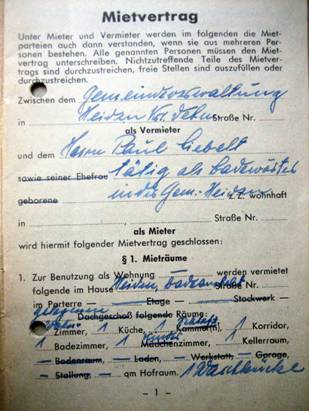 Mietvertrag
Unter Mieter und Vermieter werden im folgenden die Miet-
parteien auch dann verstanden, wenn sie aus mehreren Per-
sonen bestehen. Alle genannten Personen müssen den Miet-
vertrag unterschreiben. Nichtzutreffende Teile des Mietver-
trags sind durchzustreichen, freie Stellen sind auszufüllen oder
durchzustreichen.
Zwischen dem Gemeindeverwaltung
in Heiden Straße Nr.
als Vermieter
und dem Herrn Paul Siebelt
sowie seiner Ehefrau tätig als Badewärter
geborene in der Gem. Heiden z.Z. wohnhaft
in Straße Nr.
als Mieter
wird hiermit folgender Mietvertrag geschlossen:
§ 1. Mieträume
1. Zur Benutzung als Wohnung werden vermietet
folgende im Hause Heiden, Badeanstalt Straße Nr.
im Parterre — Etage — Stockwerk —
Dachgeschoß folgende Räume:
Zimmer, 1 Küche, 1 Kammer(n), 1 Korridor,
1 Badezimmer, 1 Mädchenzimmer, 1 Kellerraum,
— Bodenraum, — Laden, — Werkstatt, — Garage,
— Stallung, — am Hofraum. 1 Waschküche
— 1 —